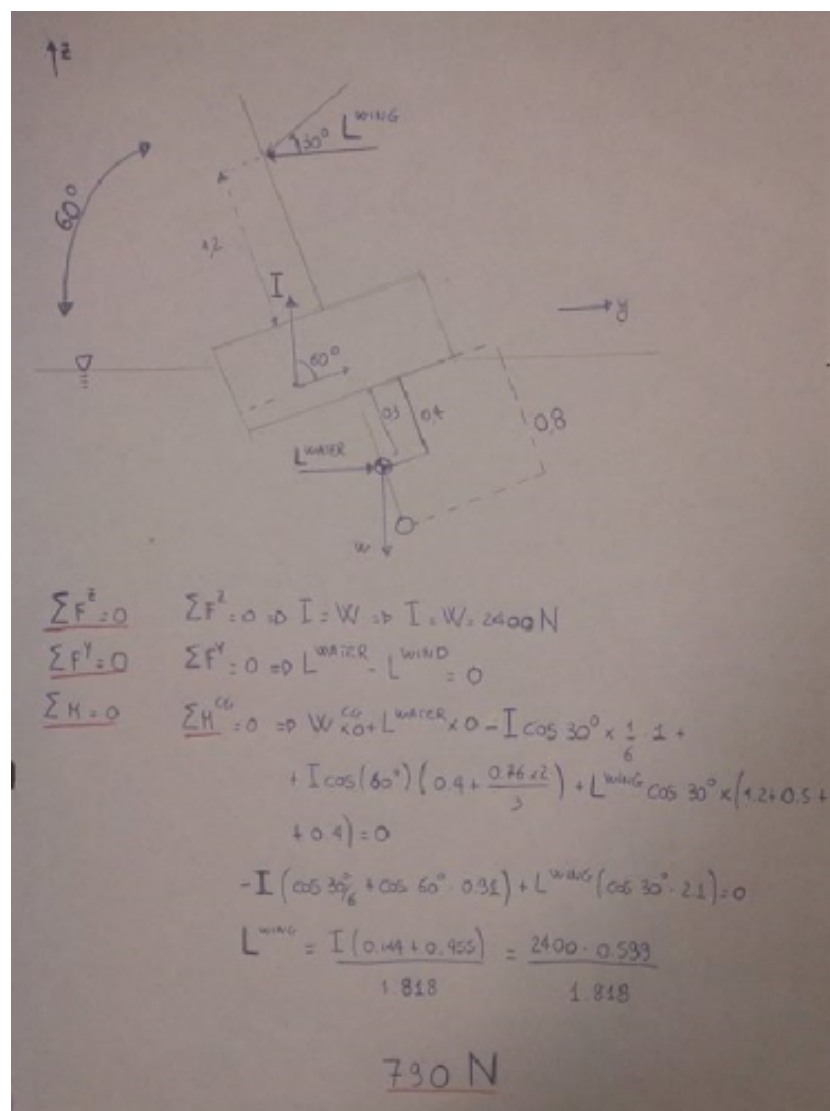 z
30° L^WING
60°
1,2
I
y
60°
0.5
0,4
0,8
L^WATER
W
ΣF^z=0 ΣF^z=0 => I=W => I=W=2400N
ΣF^Y=0 ΣF^Y=0 => L^WATER - L^WIND = 0
ΣM=0 ΣM^CG=0 => W^CG x0+L^WATER x0 - I cos 30° x 1/6 · 1 +
+ I cos(60°)(0.4 + 0.76x2/3) + L^WING cos 30° x (1.2+0.5+
+0.4)=0
-I (cos 30°/6 + cos 60° · 0.91) + L^WING (cos 30° · 2.1)=0
L^WING = I(0.144+0.455)/1.818 = 2400·0.599/1.818
790 N